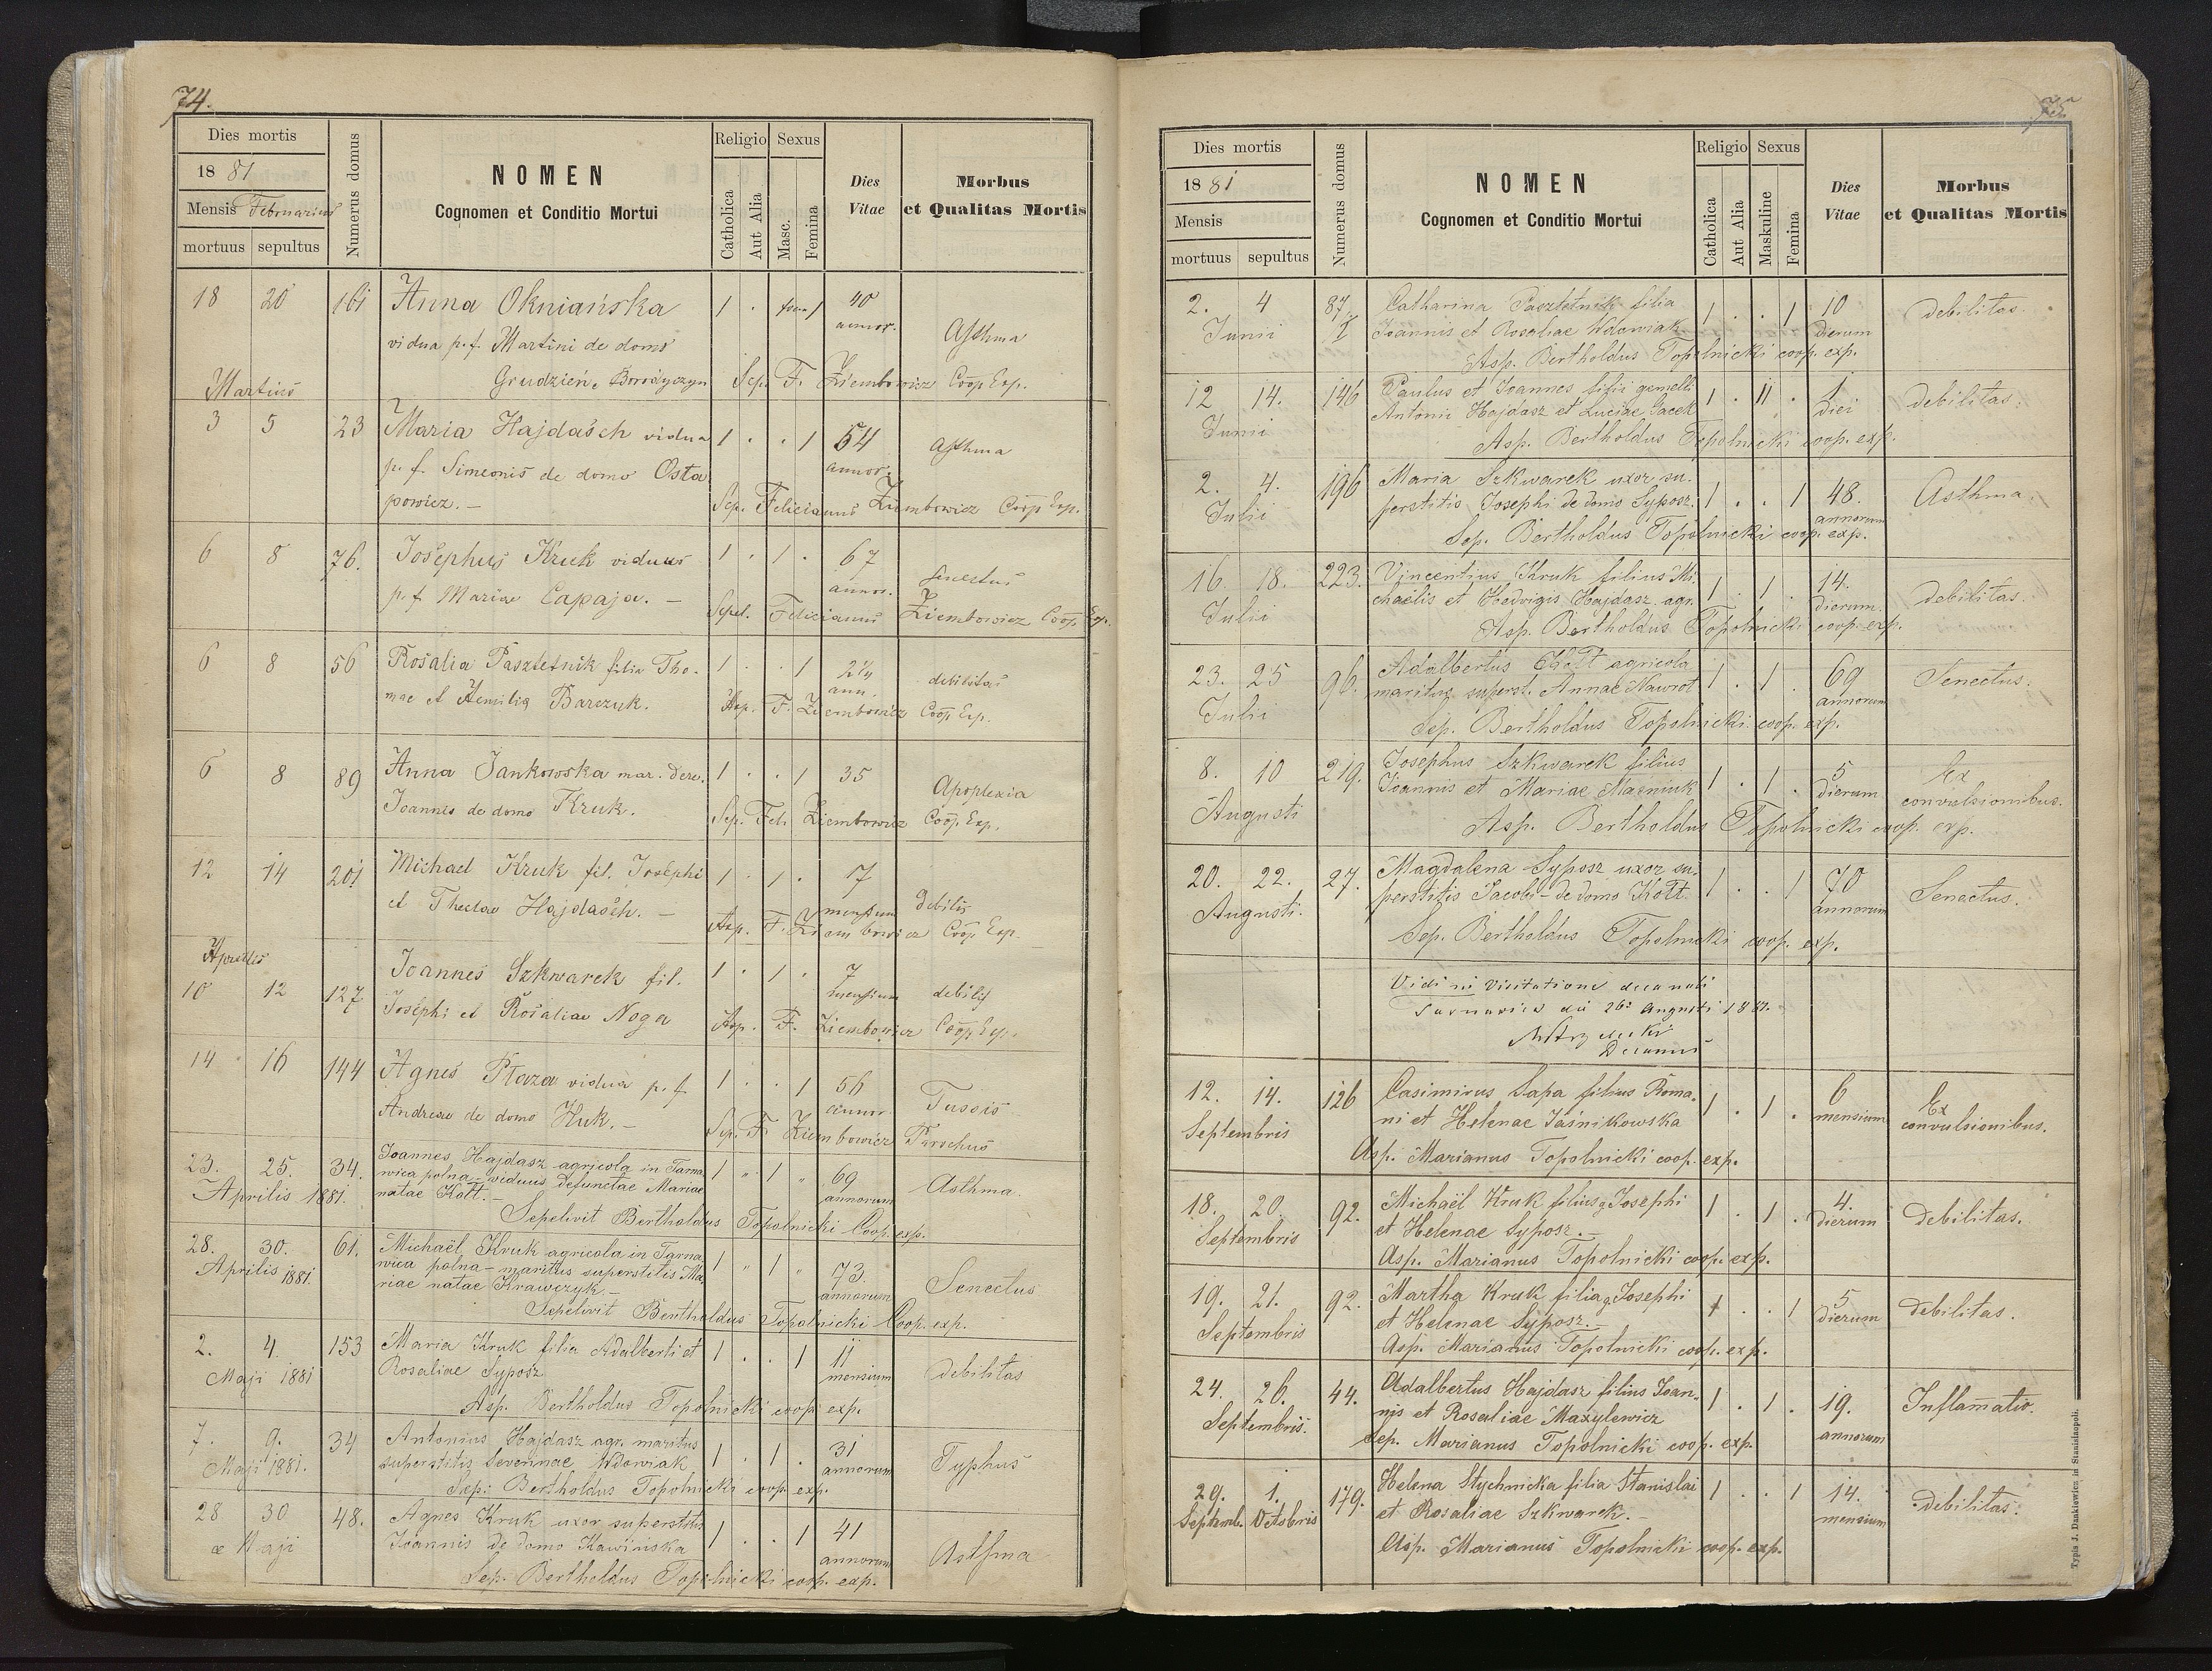 74.
Dies mortis
1881
Mensis Februarius
mortuus sepultus
Numerus domus
NOMEN
Cognomen et Conditio Mortui
Religio
Catholica
Aut Alia
Sexus
Masc.
Femina
Dies
Vitae
Morbus
et Qualitas Mortis
18 20 161 Anna Okniańska 1 . 1 40
vidua p. f. Martini de domo annor. Asthma
Grudzień, Sep. F. Ziembowicz Coop Exp.
Martius
3 5 23 Maria Hajdasch vidua 1 . . 1 54 Asthma
p. f. Simeonis de domo Osta annor.
powicz. — Sep. Felicianus Ziembowicz Coop Exp.
6 8 76. Josephus Kruk viduus 1 . 1 . 67
p. f. Mariae Capaja. — annor. Senectus
Sepel. Felicianus Ziembowicz Coop Exp.
6 8 56 Rosalia Pasztetnik filia Tho- 1 . . 1 2¼ debilitas
mae et Aemilia Barczuk. ann.
Asp. F. Ziembowicz Coop Exp.
6 8 89 Anna Jankowska mar. dere. 1 . . 1 35
Joannis de domo Kruk. Apoplexia
Sep. Fel. Ziembowicz Coop. Exp.
12 14 201 Michael Kruk fil. Josephi 1 . 1 . 17
et Theclae Hajdasch. — mensium debilis
Asp. F. Ziembowicz Coop Exp.
Aprilis
10 12 127 Joannes Szkwarek fil. 1 . 1 . 7
Josephi et Rosaliae Noga mensium debilis
Asp. F. Ziembowicz Coop Exp.
14 16 144 Agnes Płaza vidua p. f. 1 . . 1 56
Andreae de domo Huk. — annor. Tussis
Sep. F. Ziembowicz Parochus
23. 25. 34. Joannes Hajdasz agricola in Tarna
wica polna – viduus defunctae Mariae 1 " 1 " 69 Asthma.
Aprilis 1881. natae Kott. — annorum
Sepelivit Bertholdus Topolnicki Coop. exp.
28. 30. 61. Michaël Kruk agricola in Tarna
wica polna – maritus superstitis Ma- 1 " 1 " 73. Senectus
Aprilis 1881. riae natae Krawczyk — annorum
Sepelivit Bertholdus Topolnicki Coop. exp.
2. 4. 153 Maria Kruk filia Adalberti et 1 . . 1 11
Maji 1881 Rosaliae Syposz mensium debilitas
Asp. Bertholdus Topolnicki coop. exp.
7. 9. 34 Antonius Hajdasz agr. maritus 1 . 1 . 31
Maji 1881. superstitis Severinae Wdowiak annorum Typhus
Sep. Bertholdus Topolnicki coop. exp.
28 30 48. Agnes Kruk uxor superstitis 1 . . 1 41
Maji Joannis de domo Kawińska annorum Asthma
Sep. Bertholdus Topolnicki coop. exp.
75
Dies mortis
1881
Mensis
mortuus sepultus
Numerus domus
NOMEN
Cognomen et Conditio Mortui
Religio
Catholica
Aut Alia
Sexus
Maskuline
Femina
Dies
Vitae
Morbus
et Qualitas Mortis
2. 4 87. Catharina Pasztetnik filia 1 . . 1 10 debilitas.
Junii I Joannis et Rosaliae Wdowiak dierum
Asp. Bertholdus Topolnicki coop. exp.
12 14. 146 Paulus et Joannes filii gemelli 1 . 11 . 1 debilitas.
Junii Antonii Hajdasz et Luciae Jacek diei
Asp. Bertholdus Topolnicki coop. exp.
2. 4. 196 Maria Szkwarek uxor su- 1 . . 1 48. Asthma.
Julii perstitis Josephi de domo Syposz. annorum
Sep. Bertholdus Topolnicki coop. exp.
16. 18. 223. Vincentius Kruk filius Mi- 1 . 1 . 14. debilitas.
Julii chaëlis et Hedvigis Hajdasz agr. dierum.
Asp. Bertholdus Topolnicki coop. exp.
23. 25 96. Adalbertus Kott agricola 1 . 1 . 69 Senectus.
Julii maritus superst. Annae Nawrot annorum
Sep. Bertholdus Topolnicki coop. exp.
8. 10 219. Josephus Szkwarek filius 1 . 1 . 5 Ex
Augusti Joannis et Mariae Mazniuk dierum convulsionibus.
Asp. Bertholdus Topolnicki coop. exp.
20. 22. 27. Magdalena Syposz uxor su- 1 . . 1 70 Senectus.
Augusti. perstitis Jacobi – de domo Kott. annorum
Sep. Bertholdus Topolnicki coop. exp.
Vidi in Visitatione decanali
Tarnavica die 26 Augusti 1881.
Decanus
12. 14. 126 Casimirus Sapa filius Roma- 1 . 1 . 6 Ex
Septembris ni et Helenae Jaśnikowska mensium convulsionibus.
Asp. Marianus Topolnicki coop. exp.
18. 20. 92. Michaël Kruk filius Josephi 1 . 1 . 4. debilitas.
Septembris et Helenae Syposz. — dierum
Asp. Marianus Topolnicki coop. exp.
19. 21. 92. Martha Kruk filia Josephi 1 . . 1 5 debilitas.
Septembris et Helenae Syposz. — dierum
Asp. Marianus Topolnicki coop. exp.
24. 26. 44. Adalbertus Hajdasz filius Joan- 1 . 1 . 19. Inflamatio.
Septembris. nis et Rosaliae Mazylewicz annorum
Sep. Marianus Topolnicki coop. exp.
29. 1. 179. Helena Stychnicka filia Stanislai 1 . . 1 14. debilitas.
Septemb. Octobris et Rosaliae Szkwarek. — mensium
Asp. Marianus Topolnicki coop. exp.
Typis J. Dankiewicz in Stanislaopoli.